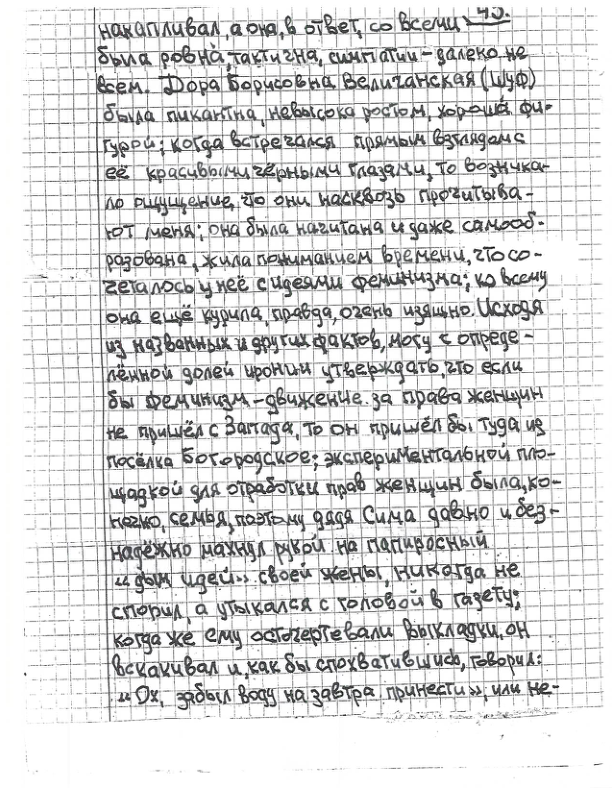 45.
накапливал, а она, в ответ, со всеми
была ровна, тактична, симпатии – далеко не
всем. Дора Борисовна Величанская (Шуф)
была пикантна, невысока ростом, хороша фи-
гурой; когда встречался прямым взглядом с
её красивыми чёрными глазами, то возника-
ло ощущение, что они насквозь прочитыва-
ют меня; она была начитана и даже самооб-
разована, жила пониманием времени, что со-
четалось у неё с идеями феминизма; ко всему
она ещё курила, правда, очень изящно. Исходя
из названных и других фактов, могу с опреде-
лённой долей иронии утверждать, что если
бы феминизм – движение за права женщин
не пришёл с Запада, то он пришёл бы туда из
посёлка Богородское; экспериментальной пло-
щадкой для отработки прав женщин была, ко-
нечно, семья, поэтому дядя Сима давно и без-
надёжно махнул рукой на папиросный
«дым идей» своей жены, никогда не
спорил, а утыкался с головой в газету;
когда же ему осточертевали выкладки, он
вскакивал и, как бы спохватившись, говорил:
«Ох, забыл воду на завтра принести», или не-